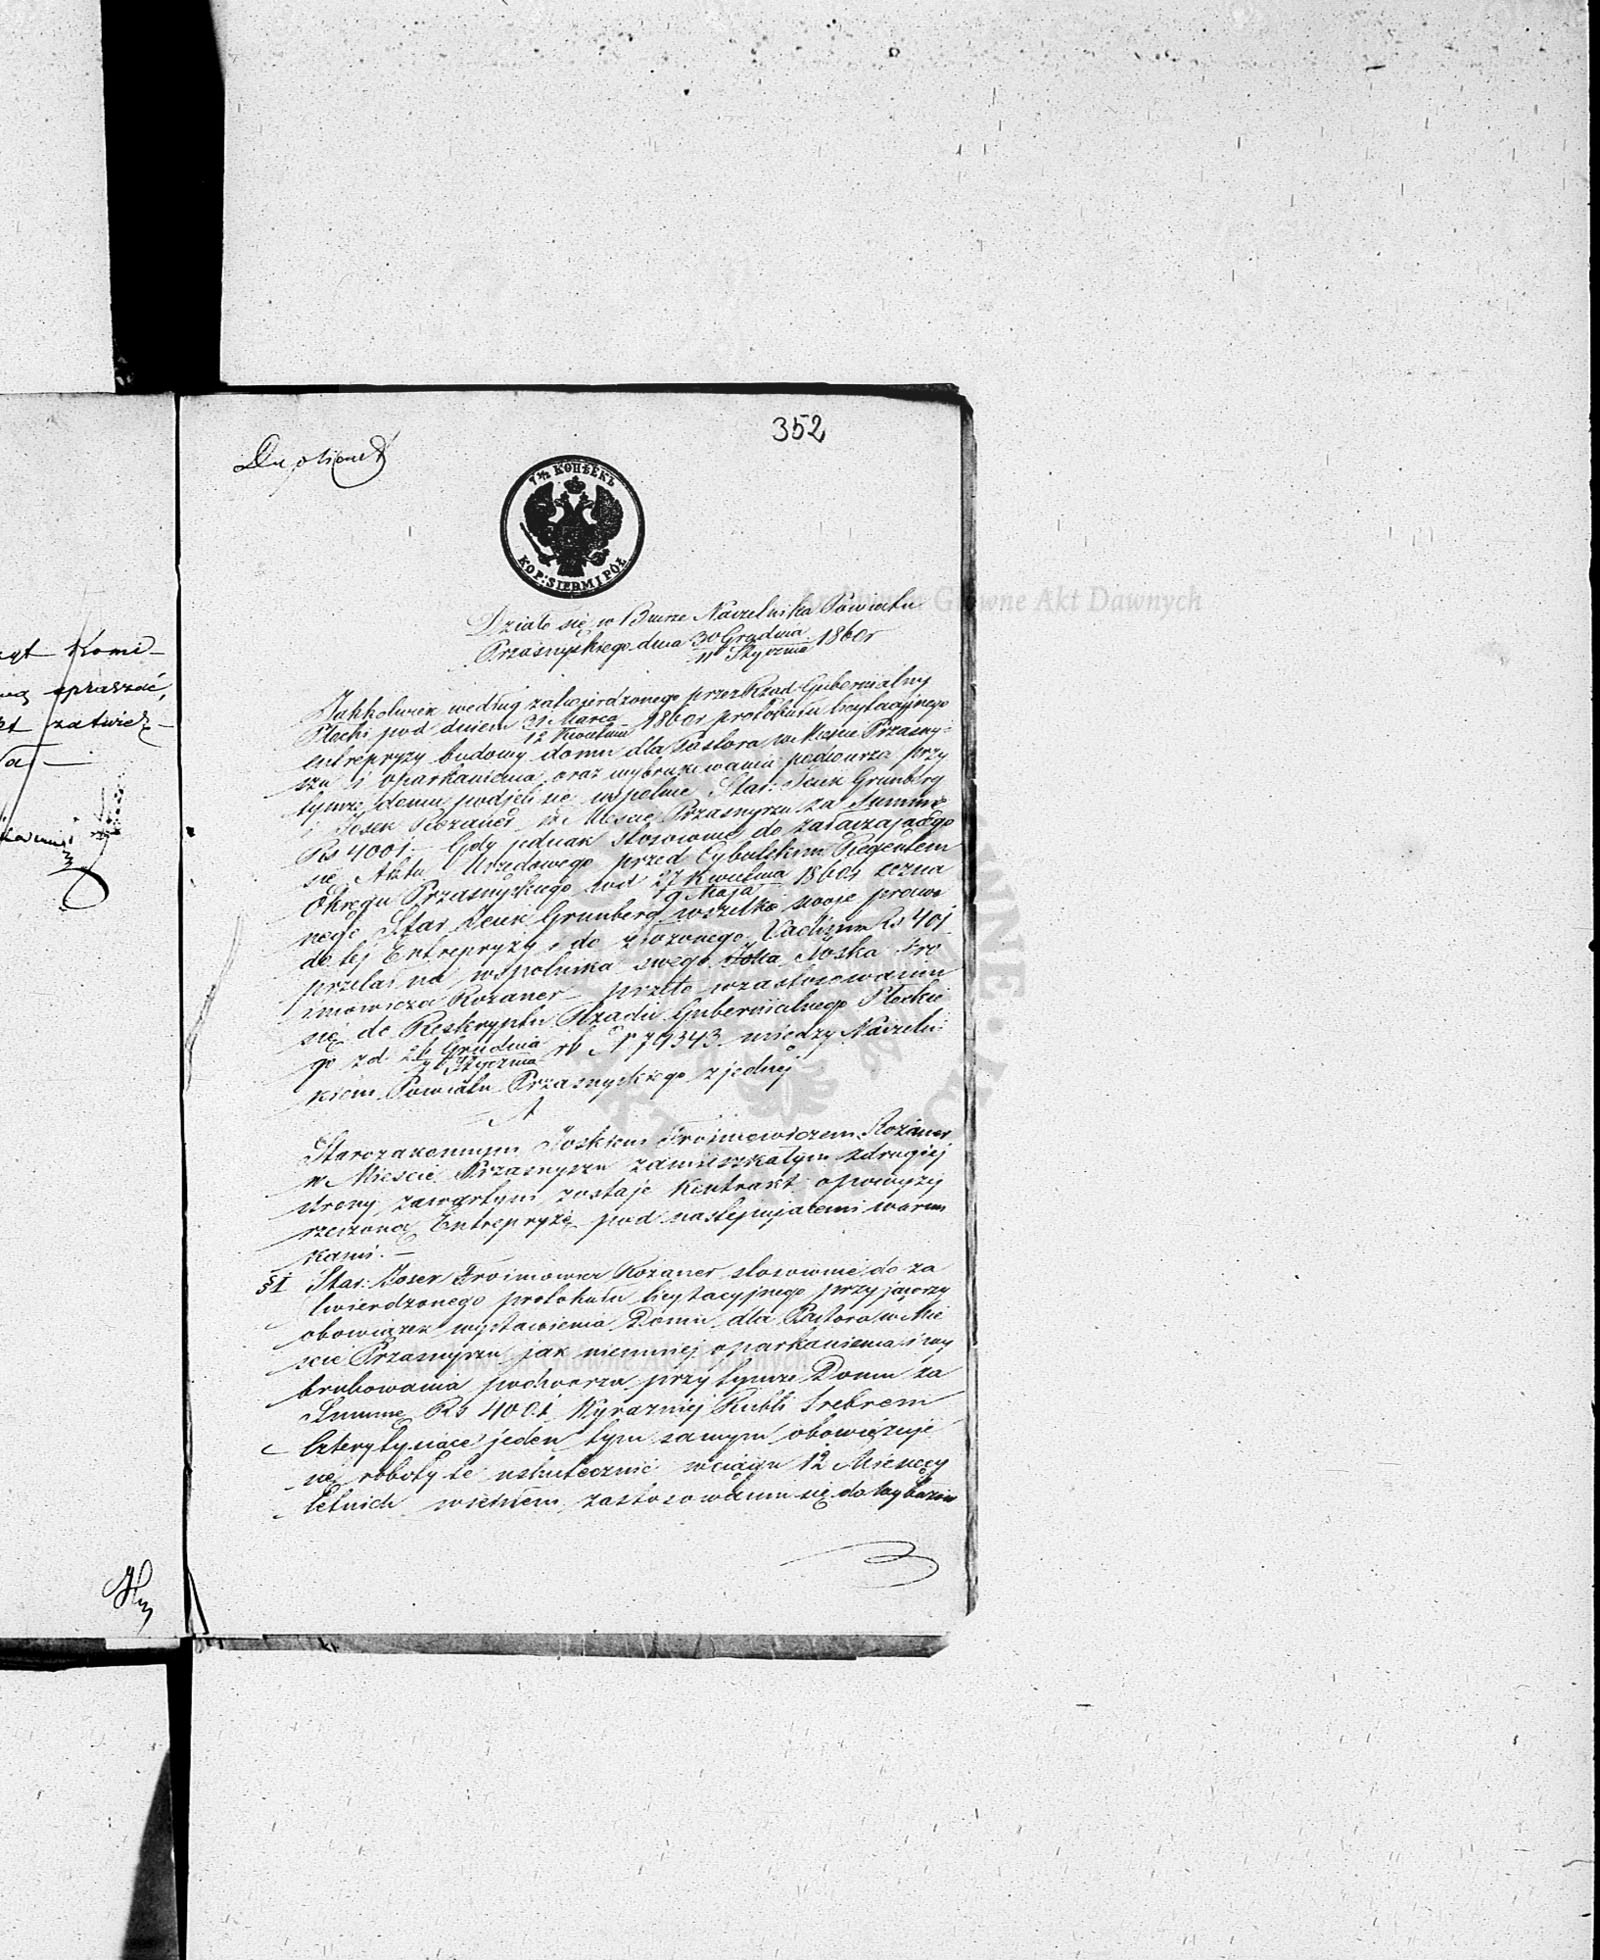 352
Duplicat
7½ КОПѢЕКЪ
KOP: SIEDM I PÓŁ
Działo się w Biurze Naczelnika Powiatu
Przasnyskiego dnia 30 Grudnia / 11 Stycznia 1860r
Jakkolwiek według zatwierdzonego przez Rząd Gubernialny
Płocki pod dniem 31 Marca / 12 Kwietnia 1860r protokułu licytacyjnego
entrepryzy budowy domu dla Pastora w Mieście Przasny-
szu i oparkanienia oraz wybrukowania podwurza przy
tymże domu podjeli się wspolnie Star: Icek Grunberg
i Josek Rozaner w Miescie Przasnyszu za Summę
Rs 4001.— Gdy jednak stosownie do załączającego
się Aktu Urzędowego przed Cybulskim Regentem
Okręgu Przasnyskiego pod 27 Kwietnia / 9 Maja 1860r zezna
nego Star Icek Grunberg wszelkie swoje prawa
do tej Entrepryzy i do złożonego Vadium Rs 401
przelał na wspolnika swego Joska Fro
imowicza Rozaner przeto w zastosowaniu
się do Reskryptu Rządu Gubernialnego Płockie
go z d 26 Grudnia / 7 Stycznia rb Nr 79343 między Naczelni
kiem Powiatu Przasnyskiego z jednej
A
Starozakonnym Joskiem Froimowiczem Rozaner
w Miescie Przasnyszu zamieszkałym z drugiej
strony zawartym zostaje Kontrakt o powyżej
rzeczoną Entrepryzę pod następującemi warun
kami.—
§1 Star: Josek Froimowicz Rozaner stosownie do za
twierdzonego protokułu licytacyjnego przyjąwszy
obowiązek wystawienia Domu dla Pastora w Mie
scie Przasnyszu jak niemniej oparkanienia i wy
brukowania podwurza przy tymże Domu za
Summę Rs 4001 Wyrazniej Rubli Srebrem
Cztery tysiące jeden tym samym obowiązuje
się roboty te uskutecznić w ciągu 12 Miesięcy
letnich zastosowaniem się do
zatwier-
Archiwum Główne Akt Dawnych
Archiwum Główne Akt Dawnych